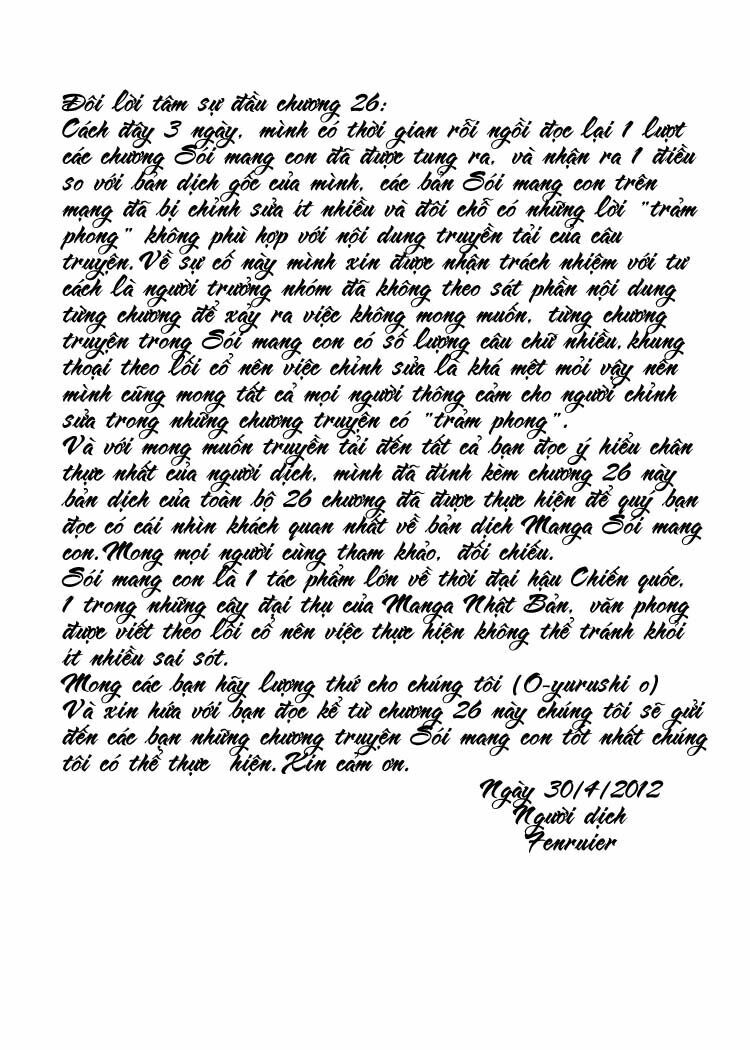 Đôi lời tâm sự đầu chương 26:
Cách đây 3 ngày, mình có thời gian rỗi ngồi đọc lại 1 lượt
các chương Sói mang con đã được tung ra, và nhận ra 1 điều
so với bản dịch gốc của mình, các bản Sói mang con trên
mạng đã bị chỉnh sửa ít nhiều và đôi chỗ có những lời "trảm
phong" không phù hợp với nội dung truyền tải của câu
truyện.Về sự cố này mình xin được nhận trách nhiệm với tư
cách là người trưởng nhóm đã không theo sát phần nội dung
từng chương để xảy ra việc không mong muốn, từng chương
truyện trong Sói mang con có số lượng câu chữ nhiều,khung
thoại theo lối cổ nên việc chỉnh sửa là khá mệt mỏi vậy nên
mình cũng mong tất cả mọi người thông cảm cho người chỉnh
sửa trong những chương truyện có "trảm phong".
Và với mong muốn truyền tải đến tất cả bạn đọc ý hiểu chân
thực nhất của người dịch, mình đã đính kèm chương 26 này
bản dịch của toàn bộ 26 chương đã được thực hiện để quý bạn
đọc có cái nhìn khách quan nhất về bản dịch Manga Sói mang
con.Mong mọi người cùng tham khảo, đối chiếu.
Sói mang con là 1 tác phẩm lớn về thời đại hậu Chiến quốc,
1 trong những cây đại thụ của Manga Nhật Bản, văn phong
được viết theo lối cổ nên việc thực hiện không thể tránh khỏi
ít nhiều sai sót.
Mong các bạn hãy lượng thứ cho chúng tôi (O-yurushi o)
Và xin hứa với bạn đọc kể từ chương 26 này chúng tôi sẽ gửi
đến các bạn những chương truyện Sói mang con tốt nhất chúng
tôi có thể thực hiện.Xin cảm ơn.
Ngày 30/4/2012
Người dịch
Fenruier